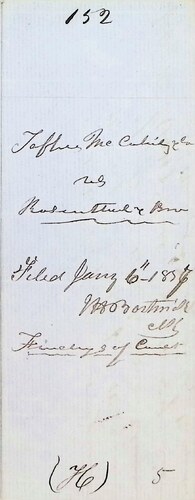 152
Jaffrey McCahily & Co
vs
Rosenthal & Bro
Filed Jany 6th 1857
Bostwick
Clk
Findings of Court
(H) 5